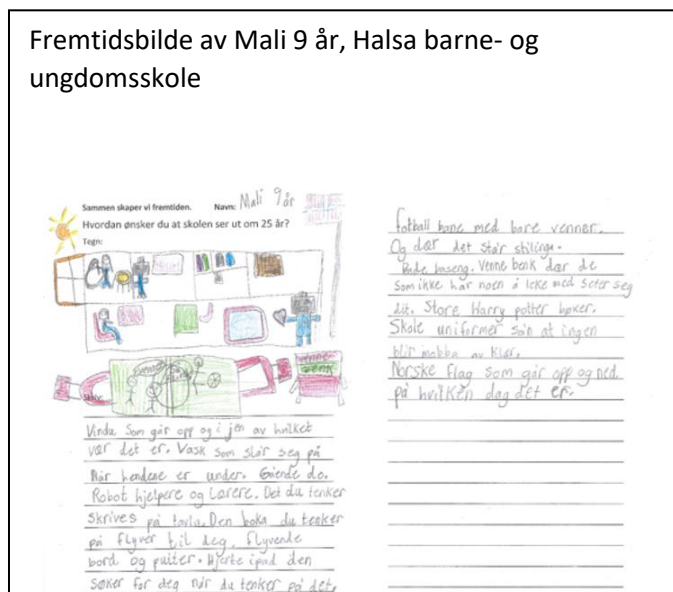 Fremtidsbilde av Mali 9 år, Halsa barne- og
ungdomsskole
Sammen skaper vi fremtiden. Navn: Mali 9 år
Hvordan ønsker du at skolen ser ut om 25 år?
Tegn:
venne
benk
Skriv:
Vindu Som går opp og i jen av hvilket
vær det er. Vask som slår seg på
Når hendene er under. Gående do.
Robot hjelpere og Lærere. Det du tenker
skrives på tavla. Den boka du tenker
på flyver til deg. flyvende
bord og pulter. Hjerte ipad den
søker for deg når du tenker på det,
fotball bane med bare venner.
Og dær det står stilinga.
Bade baseng. Venne benk dær de
som ikke har noen å leke med seter seg
dit. Store Harry potter bøker.
Skole uniformer sån at ingen
blir mobba av klær.
Norske flag som går opp og ned
på hvilken dag det er.